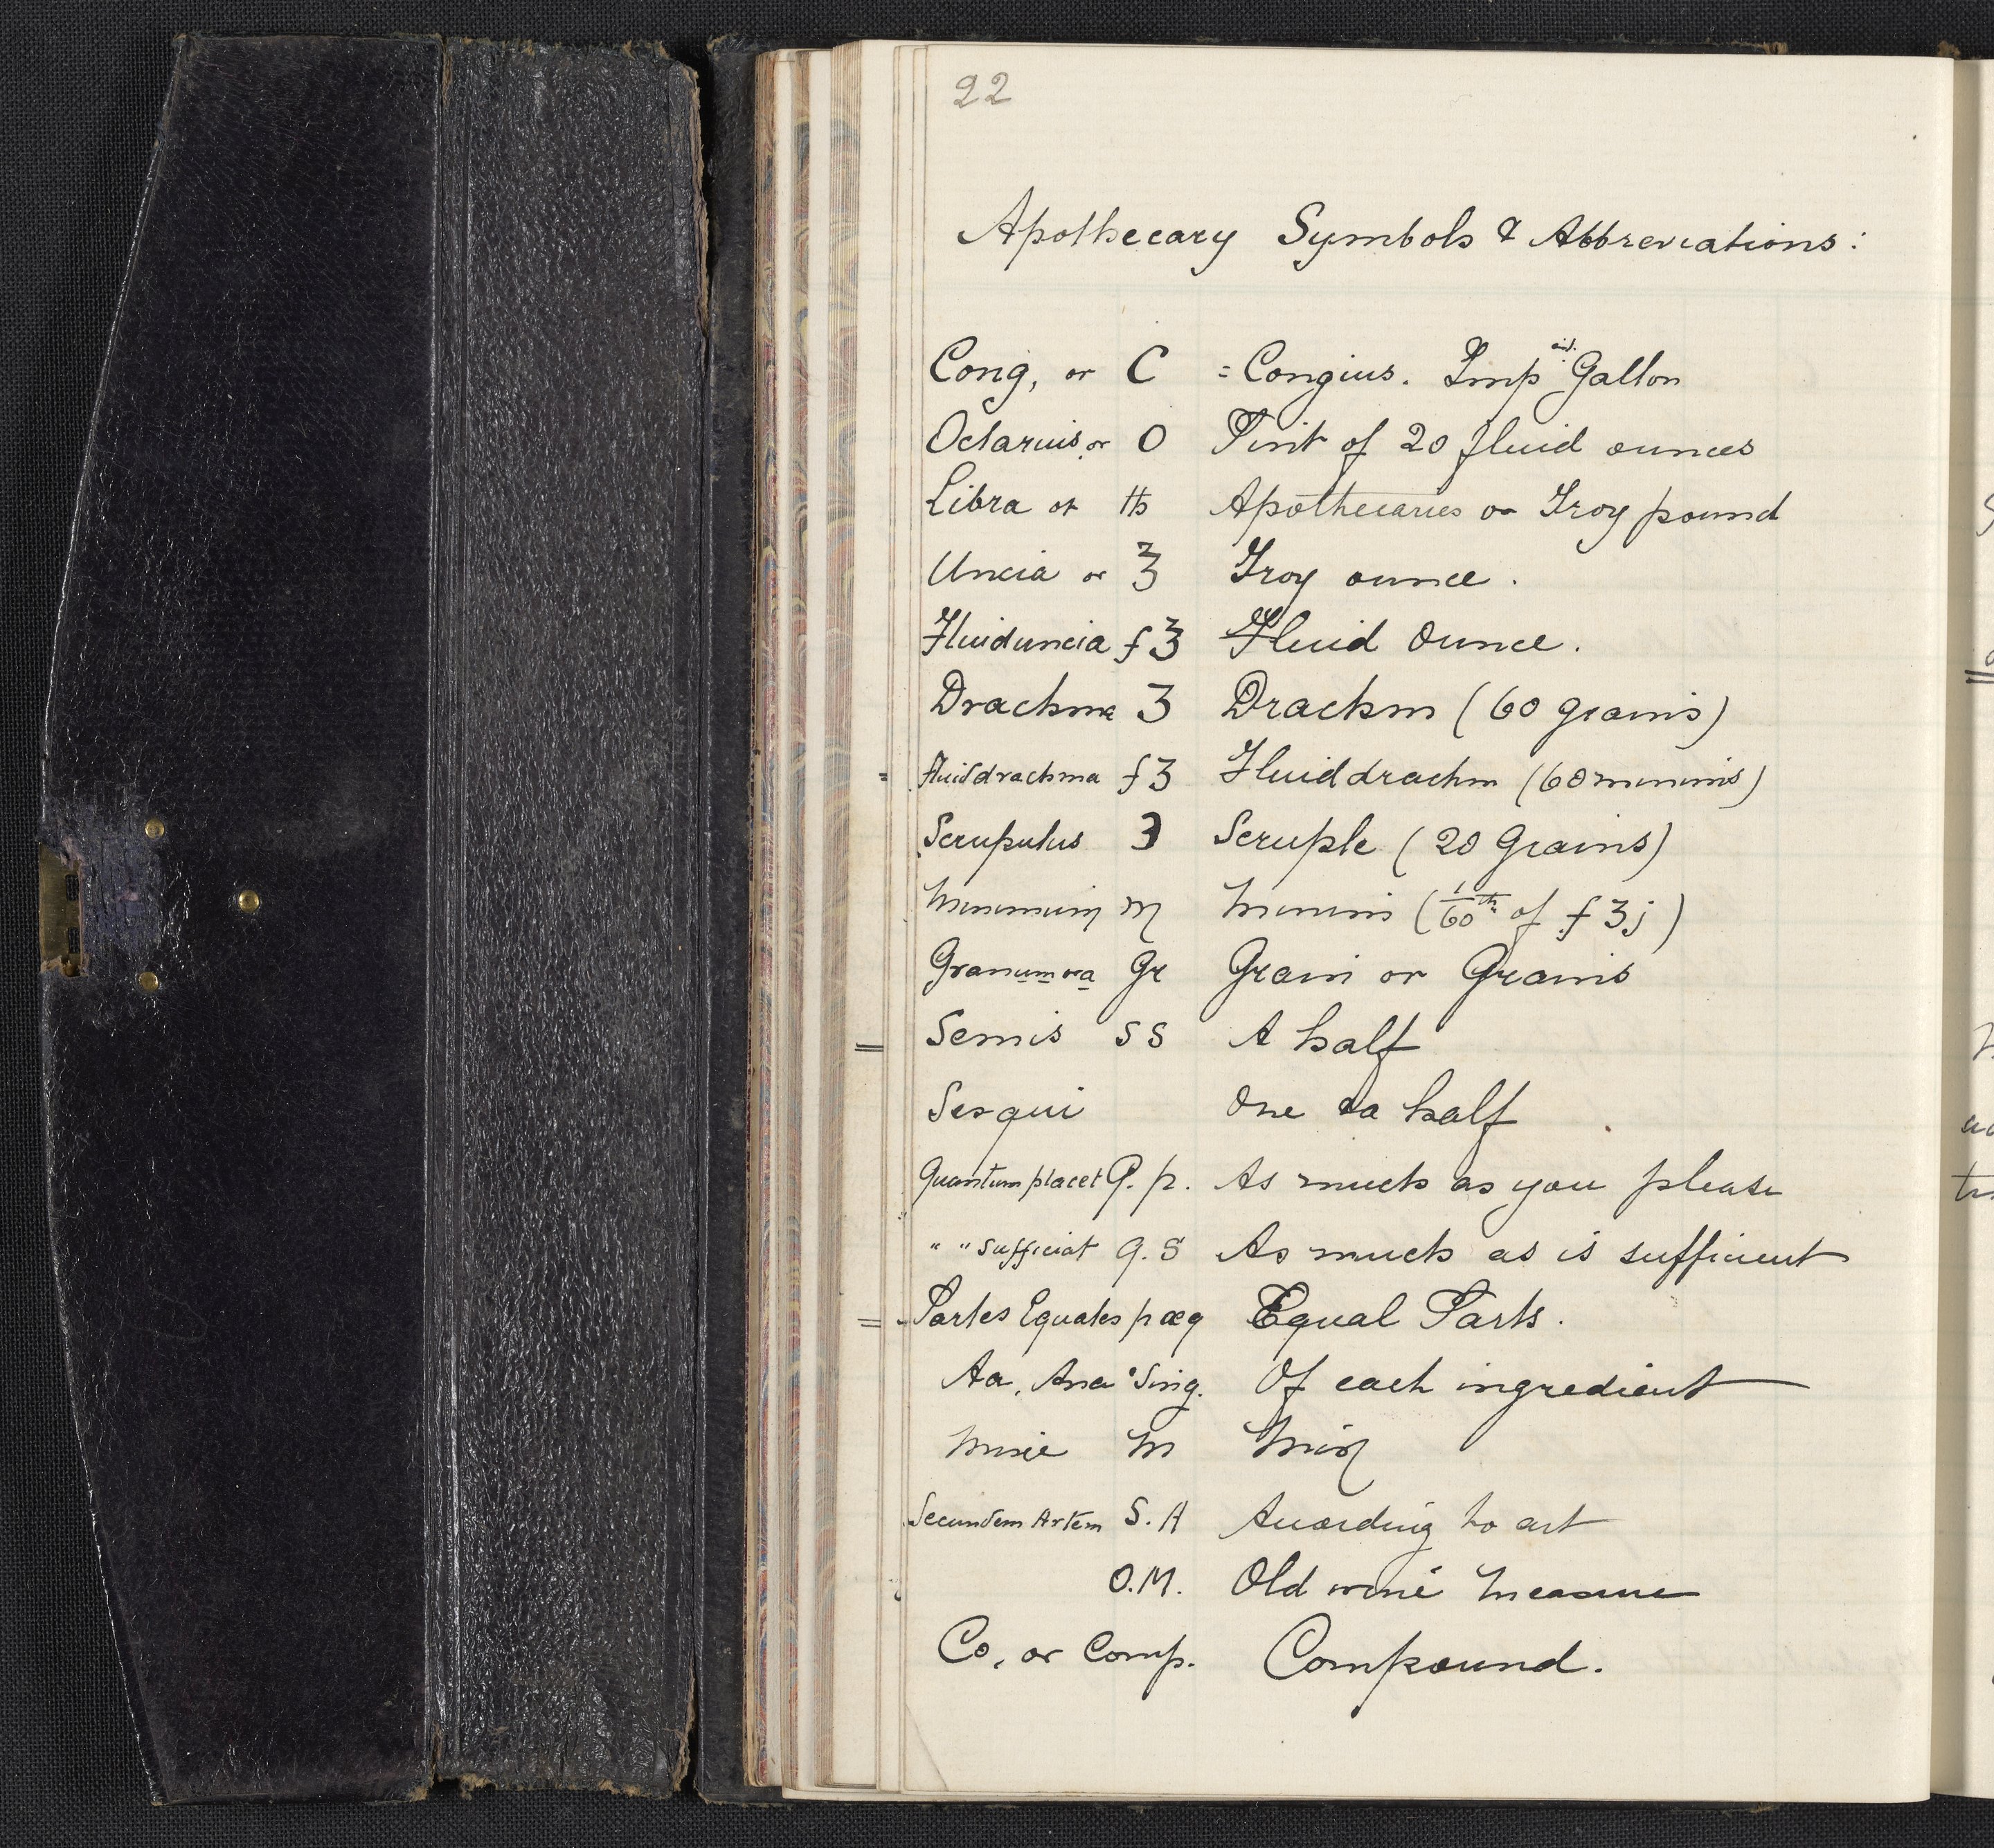 22
Apothecary Symbols & Abbreviations:
Cong, or C = Congius. Imp Gallon
Octarius, or O Pint of 20 fluid ounces
Libra or ℔ Apothecaries or Troy pound
Uncia or ℥ Troy ounce.
Fluiduncia f℥ Fluid Ounce.
Drachma ʒ Drachm (60 grains)
Fluiddrachma fʒ Fluiddrachm (60 minims)
Scrupulus ℈ Scruple (20 Grains)
Minimum ♏ Minim (1/60th of fʒj)
Granum or a Gr Grain or Grains
Semis SS A half
Sesqui One & a half
Quantum placet Q. p. As much as you please
" " Sufficiat Q. S As much as is sufficient
Partes Equales p æq Equal Parts.
Aa, Ana Sing. Of each ingredient
Misce M Mix
Secundem Artem S. A According to art
O.M. Old wine Measure
Co, or Comp. Compound.